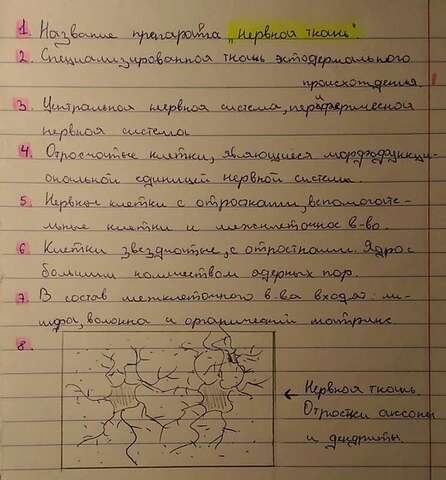 1. Название препарата „Нервная ткань".
2. Специализированная ткань эктодермального
происхождения.
3. Центральная нервная система, и периферическая
нервная система
4. Отросчатые клетки, являющиеся морфофункци-
ональной единицей нервной системы.
5. Нервные клетки с отростками, вспомогате-
льные клетки и межклеточное в-во.
6. Клетки звездчатые, с отростками. Ядро с
большим количеством ядерных пор.
7. В состав межклеточного в-ва входят: ли-
мфа, волокна и органический матрикс.
8.
← Нервная ткань.
Отростки аксоны
и дендриты.